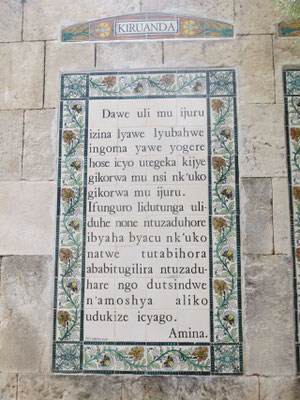 KIRUANDA
Dawe uli mu ijuru
izina lyawe lyubahwe
ingoma yawe yogere
hose icyo utegeka kijye
gikorwa mu nsi nk'uko
gikorwa mu ijuru.
Ifunguro lidutunga uli-
duhe none ntuzaduhore
ibyaha byacu nk'uko
natwe tutabihora
ababitugilira ntuzadu-
hare ngo dutsindwe
n'amoshya aliko
udukize icyago.
Amina.